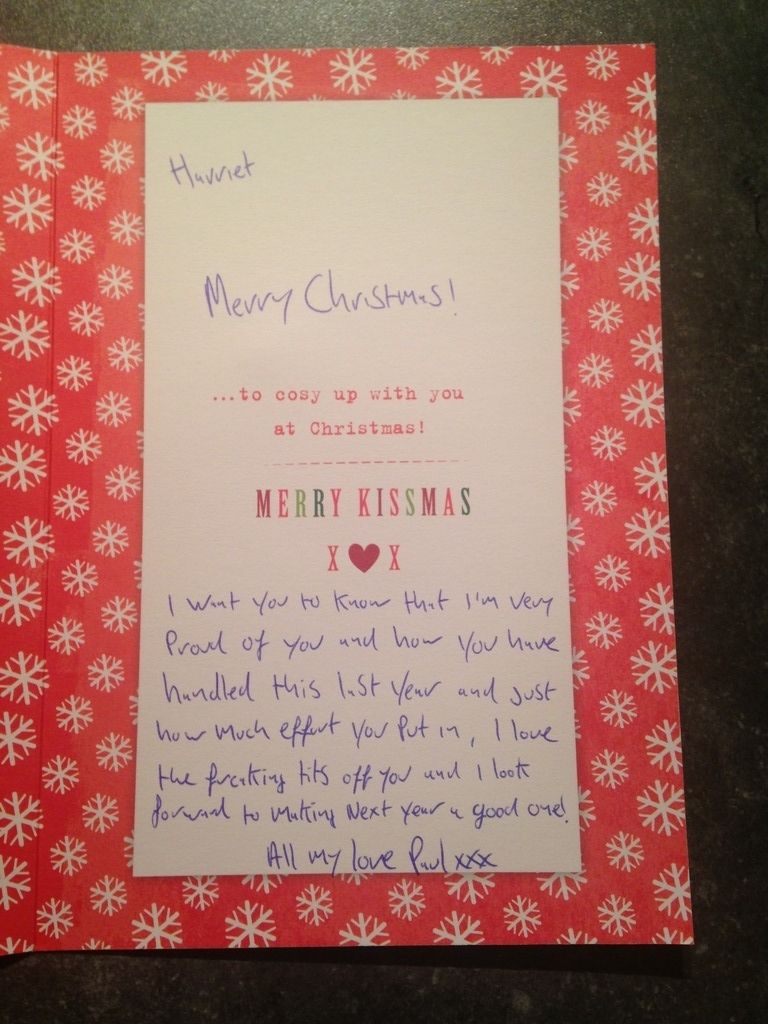 Harriet
Merry Christmas!
...to cosy up with you
at Christmas!
MERRY KISSMAS
X ♥ X
I want you to know that I'm very
Proud of you and how you have
handled this last year and just
how much effort you Put in, I love
the freaking tits off you and I look
forward to making Next year a good one!
All my love Paul xxx